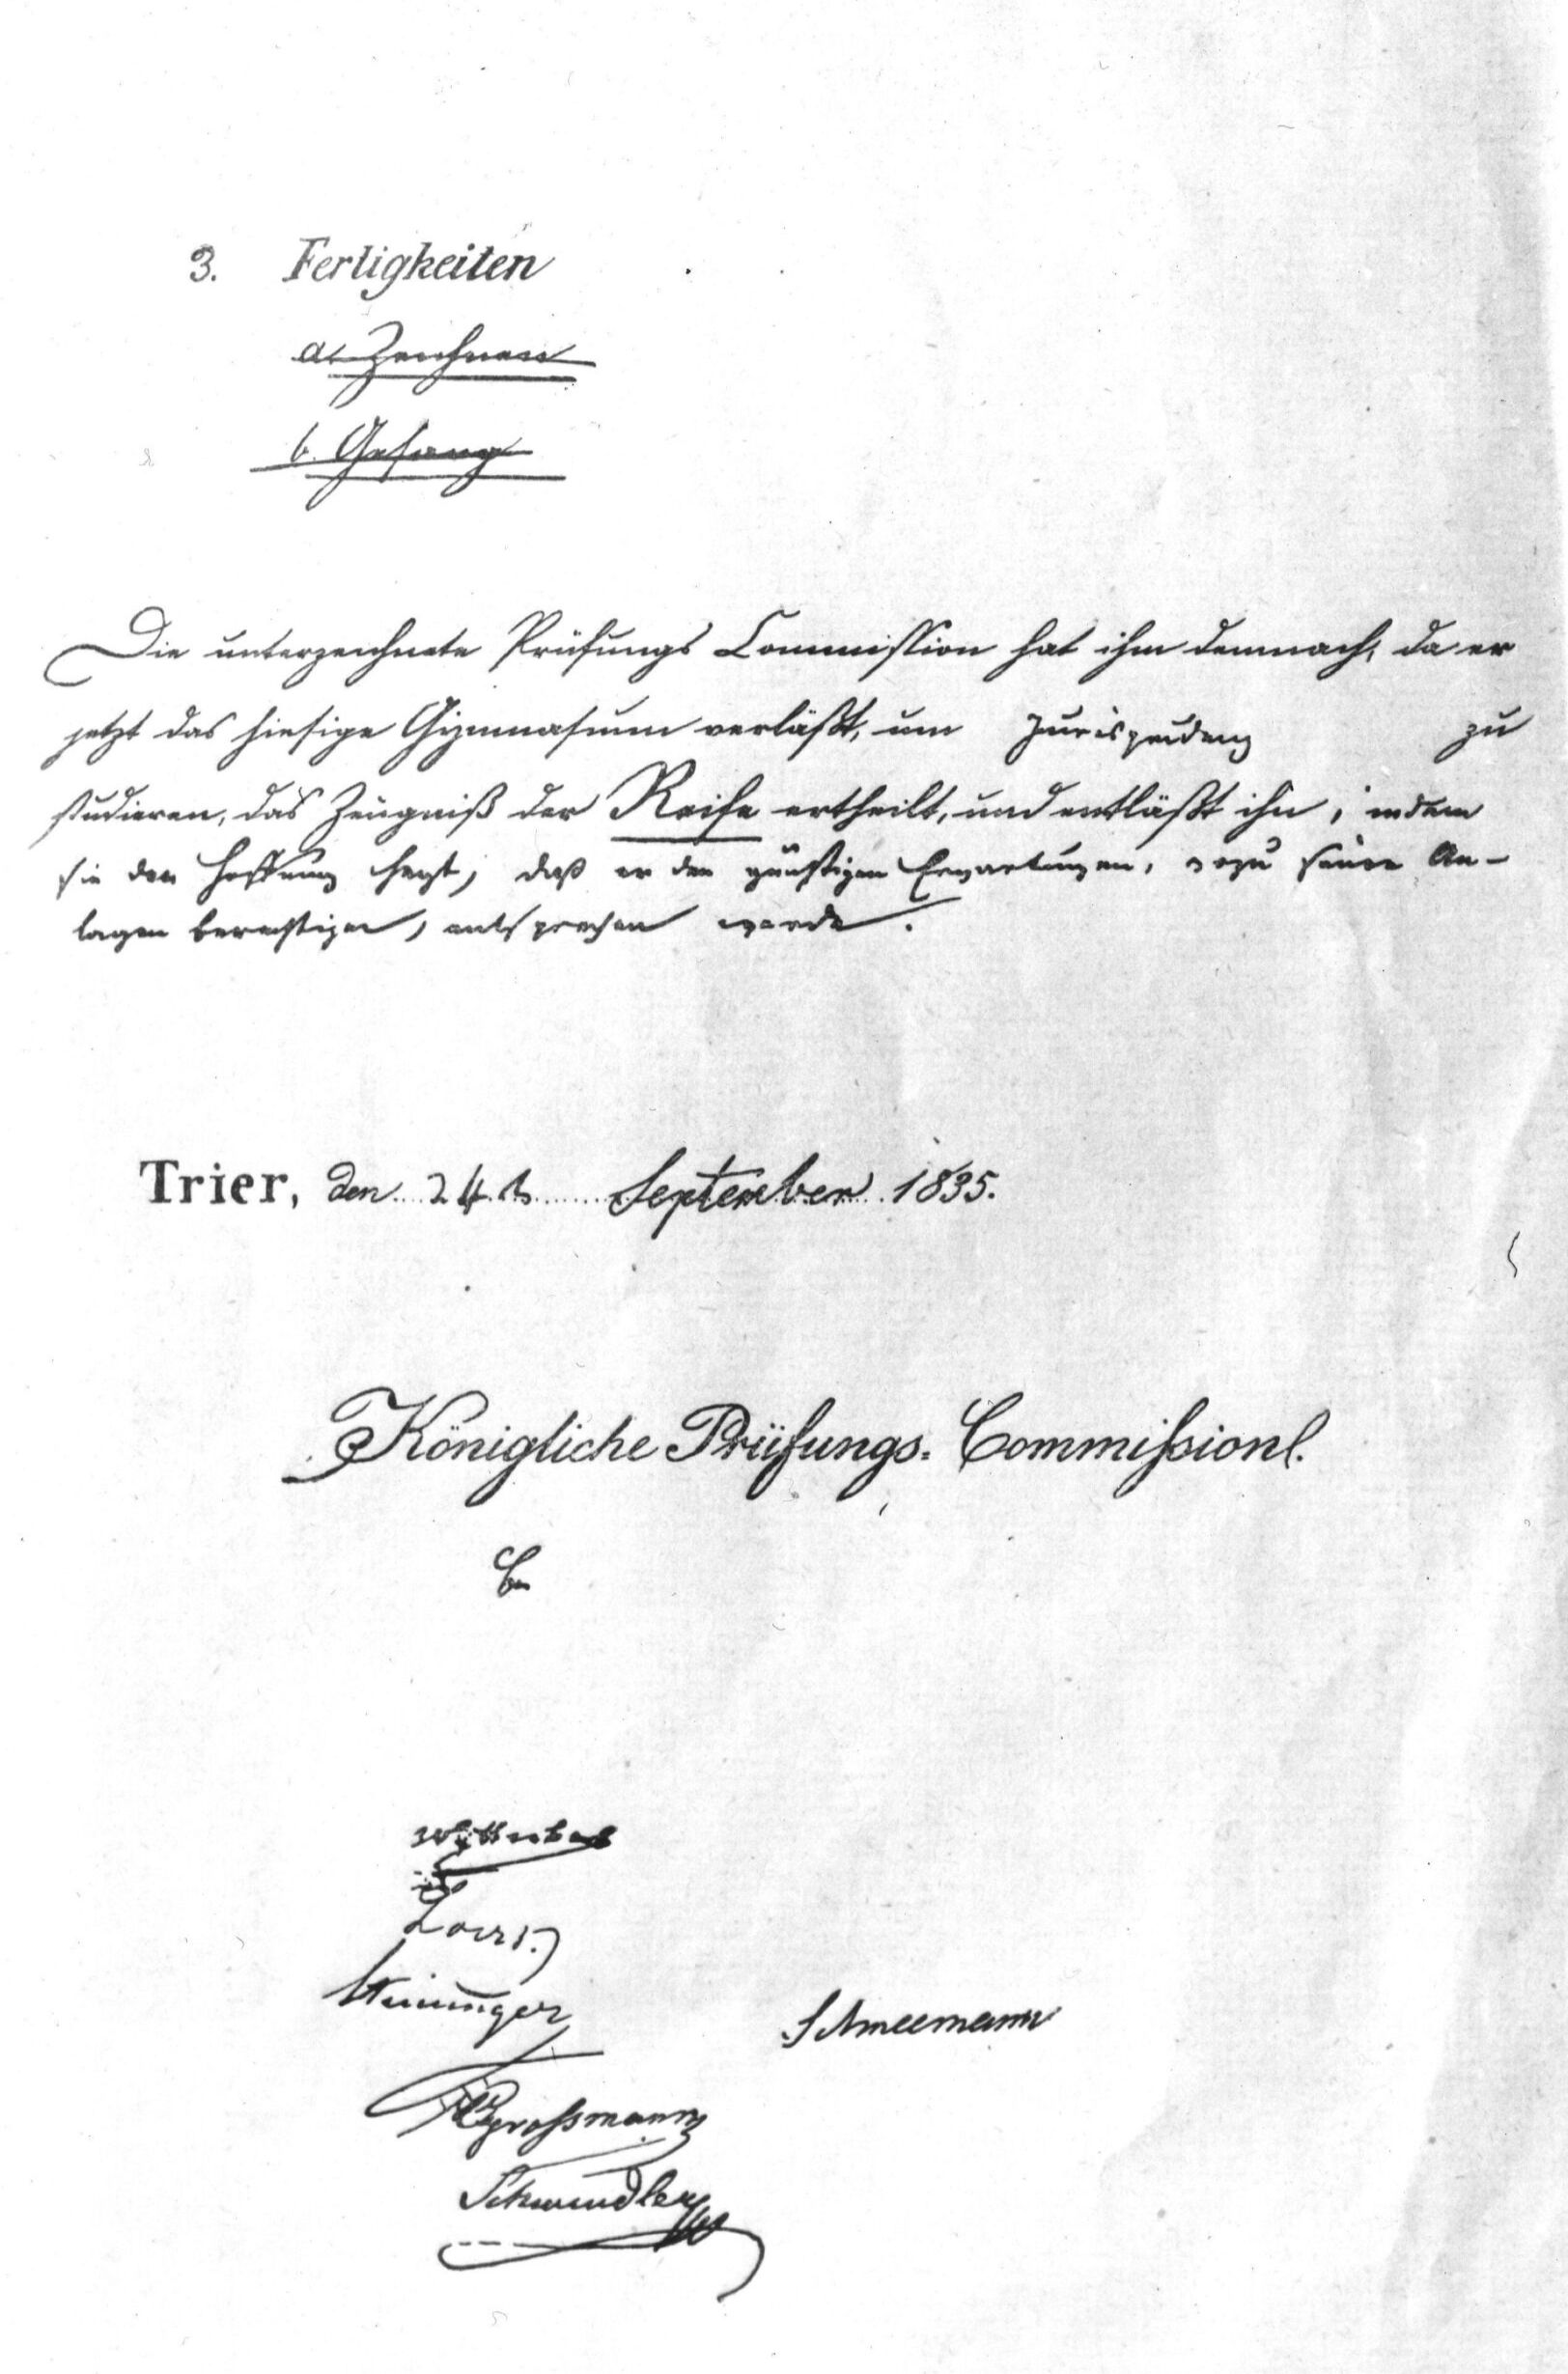 3. Fertigkeiten
a. Zeichnen
b. Gesang
Die unterzeichnete Prüfungs Commission hat ihm demnach, da er
jetzt das hiesige Gymnasium verläßt, um Jurisprudenz zu
studieren, das Zeugniß der Reife ertheilt, und entläßt ihn, indem
sie die Hoffnung hegt, daß er den günstigen Erwartungen, wozu seine An-
lagen berechtigen, entsprechen werde.
Trier, den 24t September 1835.
Königliche Prüfungs-Commission.
Wyttenbach
Loers.
Steininger
Schneemann
Grossmann
Schwendler